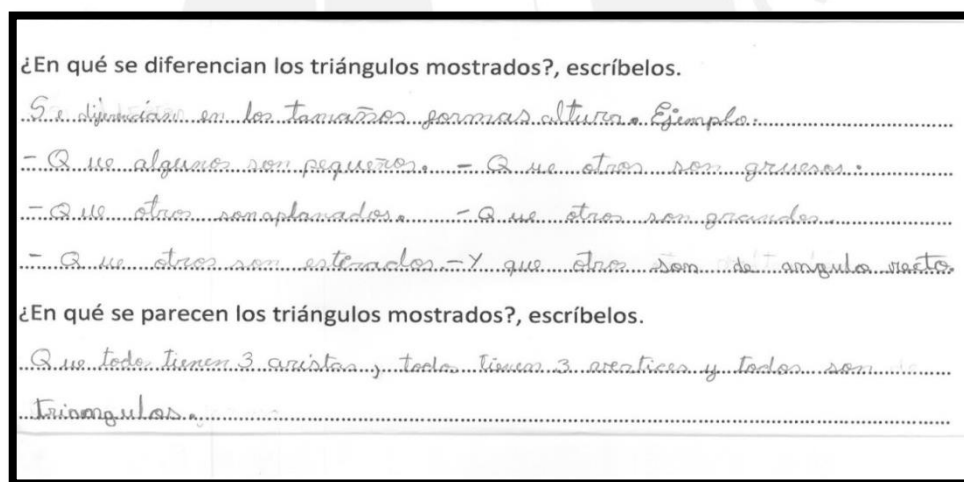 ¿En qué se diferencian los triángulos mostrados?, escríbelos.
Se diferencian en los tamaños formas altura. Ejemplo:
- Que algunos son pequeños. - Que otros son gruesos.
- Que otros son aplanados. - Que otros son grandes.
- Que otros son esterados - Y que otros son de angulo recto.
¿En qué se parecen los triángulos mostrados?, escríbelos.
Que todo tienen 3 aristas, todos tienen 3 vertices y todos son
triangulos.